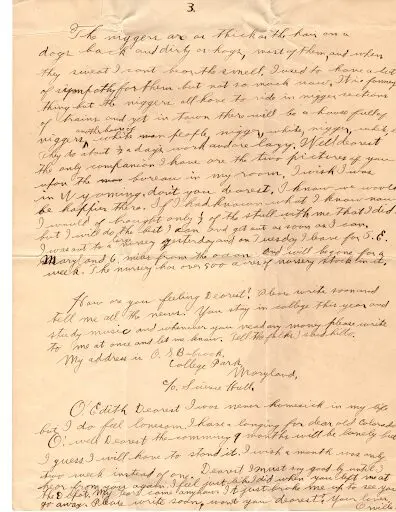 3.
The niggers are as thick as the hair on a
dogs back and dirty as hogs, most of them, and when
they sweat I cant bear the smell. I used to have a lot
of sympathy for them but not so much now. It is a funny
thing but the niggers all have to ride in nigger sections
of trains and yet in town there will be a house full of
niggers, another of white people, nigger, white, nigger, white,
They do about ½ a days work and are lazy. Well dearest
the only companion I have are the two pictures of you
upon the bureau in my room. I wish I was
in Wyoming, don't you dearest, I know we would
be happier there. If I had known what I know now
I would of bought only ½ of the stuff with me that I did
but I will do the best I can and get out as soon as I can.
I was out to a large nursery yesterday and on Tuesday I leave for S. E.
Maryland 6 miles from the ocean and will be gone for a
week. The nursery has over 500 acres of nursery stock in it.
How are you feeling Dearest! Please write soon and
tell me all the news. You stay in college this year and
study music and whenever you need any money please write
to me at once and let me know. Tell the folks
My address is O. S.
College Park,
Maryland.
c/o
O! Edith Dearest I was never homesick in my life
but I do feel lonesom. I have a longing for dear old Colorado
O! well Dearest the comming 9 months will be lonely but
I guess I will have to stand it. I wish a month was only
two weeks instead of one. Dearest I must say good by until I
hear from you again. I feel just like I did when you left me at
the Depot. My tears came anyhow. It just broke me up to see you
go away. Please write soon, wont you dearest. Your lover,